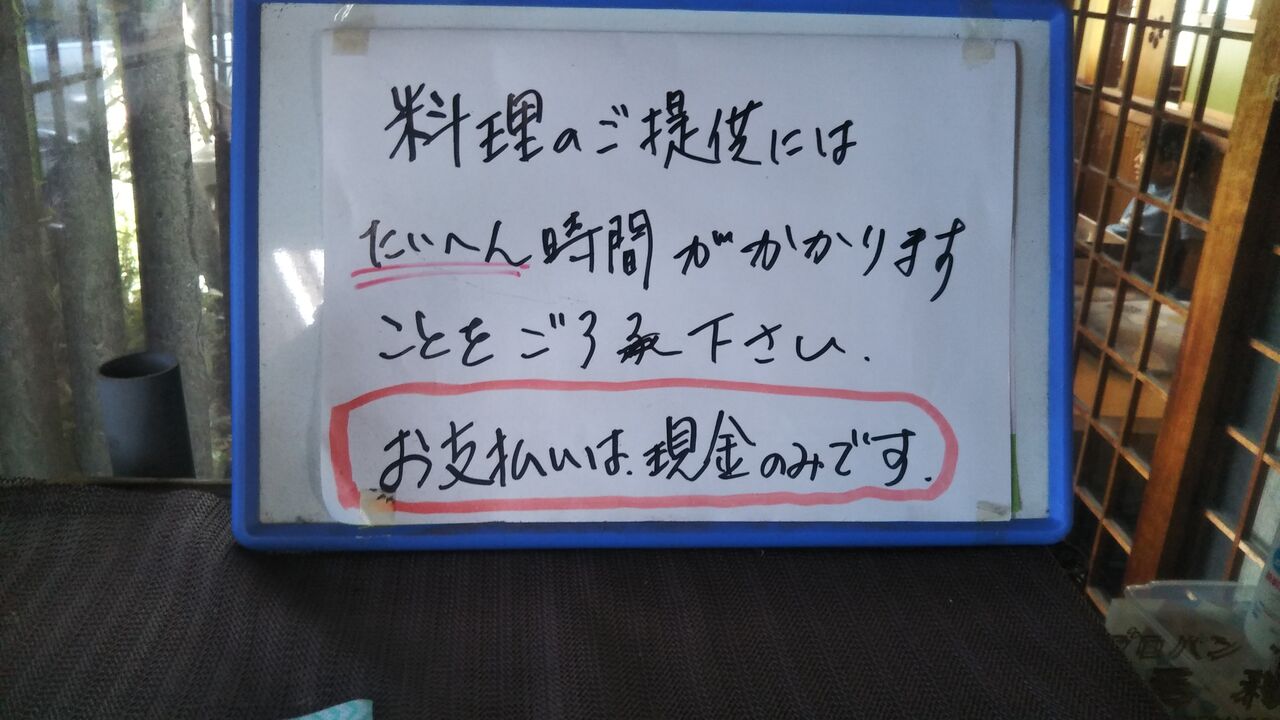 料理のご提供には
たいへん時間がかかります
ことをご了承下さい.
お支払いは.現金のみです.
プロパン